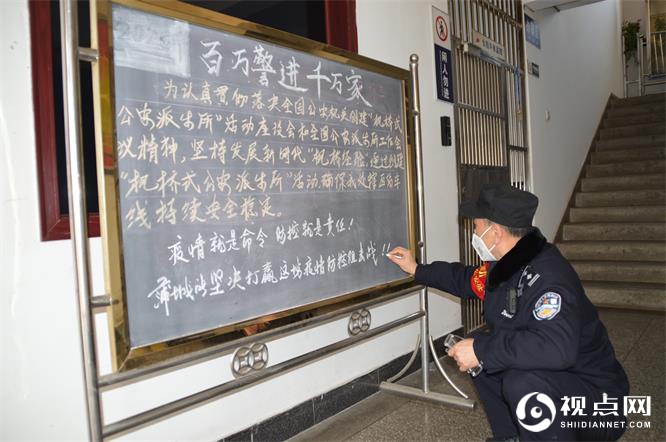 百万警进千万家
为认真贯彻落实全国公安机关创建"枫桥式
公安派出所"活动座谈会和全国公安派出所工作会
议精神,坚持发展新时代"枫桥经验,通过创建
"枫桥式公安派出所"活动,确保
持续安全稳定。
疫情就是命令 防控就是责任!
蒲城所坚决打赢这场疫情防控阻击战!!
闲人勿进
视点网
SHIDIANNET.COM